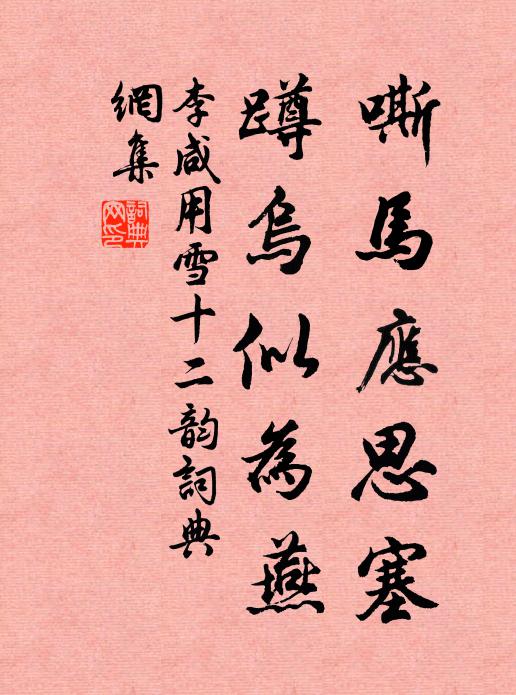 嘶馬應思塞
蹲烏似為燕
李咸用雪十二韵詞典
網集
詞典網印